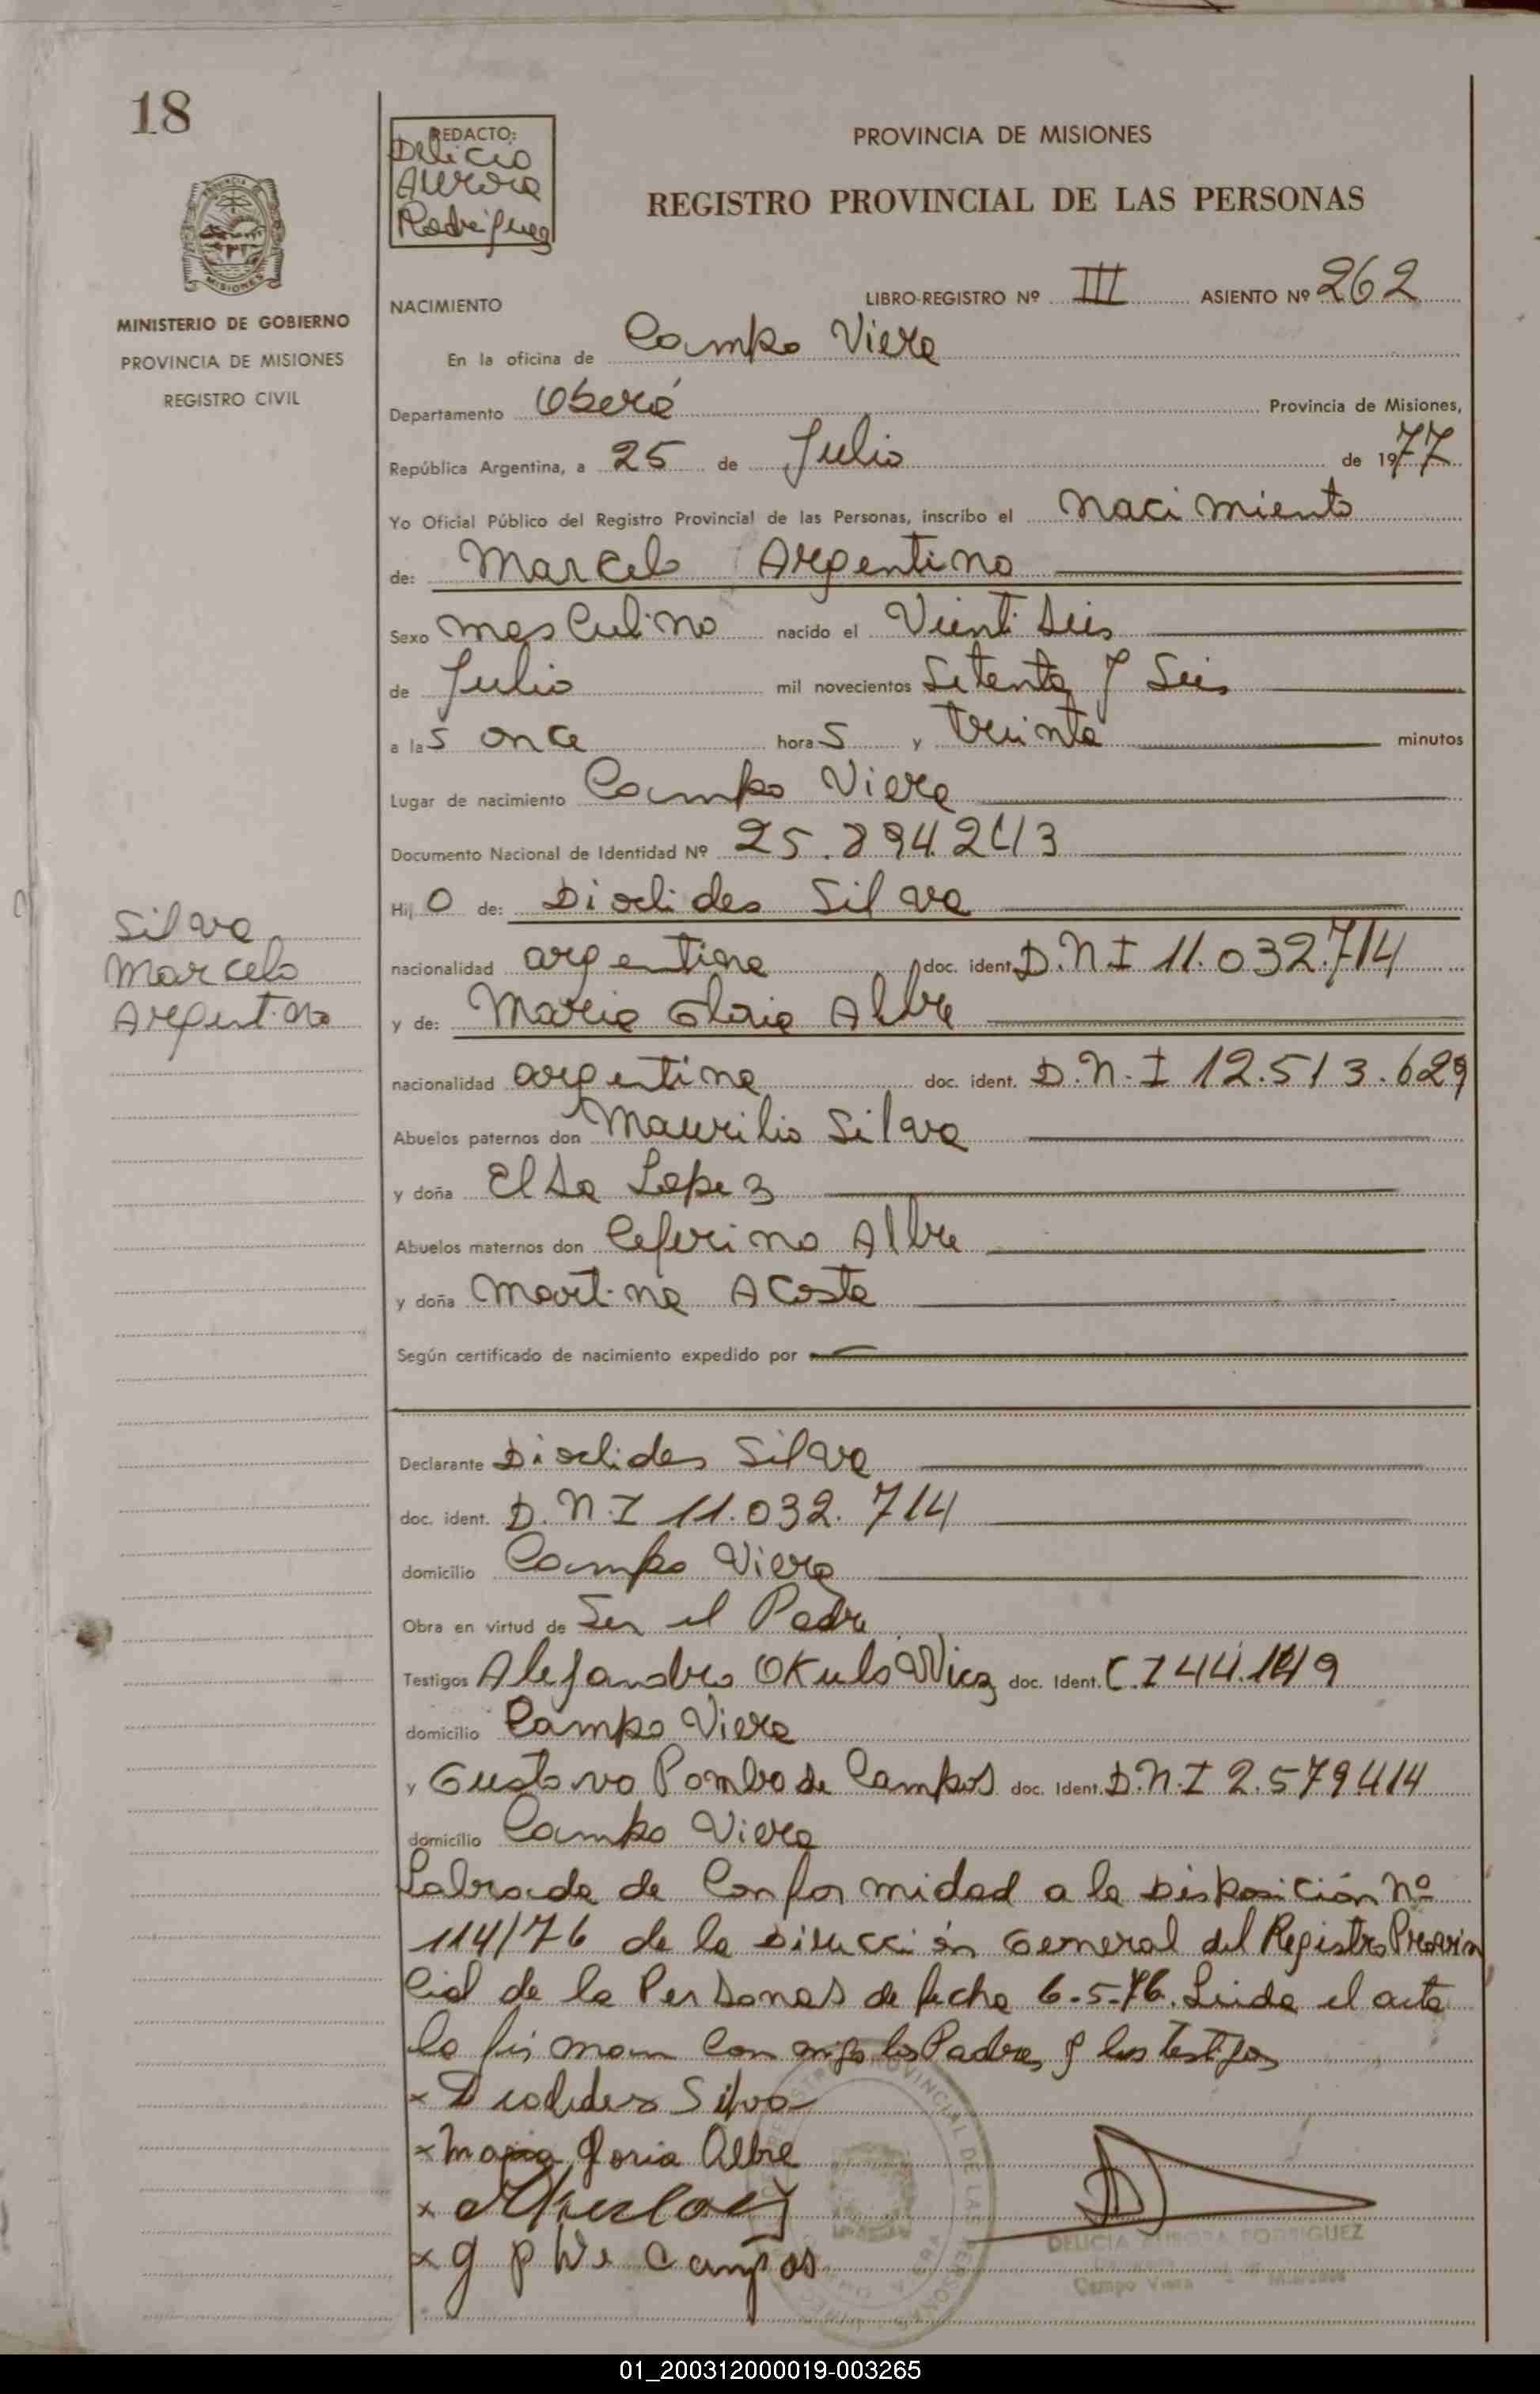 18
REDACTO:
Delicia
Aurora
Rodríguez
PROVINCIA DE MISIONES
REGISTRO PROVINCIAL DE LAS PERSONAS
PROVINCIA DE
MISIONES
MINISTERIO DE GOBIERNO
PROVINCIA DE MISIONES
REGISTRO CIVIL
NACIMIENTO
LIBRO-REGISTRO Nº III ASIENTO Nº 262
En la oficina de Campo Viera
Departamento Oberá Provincia de Misiones,
República Argentina, a 25 de Julio de 1977
Yo Oficial Público del Registro Provincial de las Personas, inscribo el nacimiento
de: Marcelo Argentino
Sexo masculino nacido el Veintiseis
de Julio mil novecientos Setenta y Seis
a las once horas y treinta minutos
Lugar de nacimiento Campo Viera
Documento Nacional de Identidad Nº 25.894.243
Hijo de: Dioclides Silva
Silva
Marcelo
Argentino
nacionalidad argentina doc. ident. D.N.I 11.032.714
y de: Maria Gloria Albre
nacionalidad argentina doc. ident. D.N.I 12.513.629
Abuelos paternos don Maurilio Silva
y doña Elsa Lopez
Abuelos maternos don Ceferino Albre
y doña Martina Acosta
Según certificado de nacimiento expedido por
Declarante Dioclides Silva
doc. ident. D.N.I 11.032.714
domicilio Campo Viera
Obra en virtud de Ser el Padre
Testigos Alejandro Okulovvicz doc. Ident. C.I 44.149
domicilio Campo Viera
y Gustavo Pombo de Campos doc. Ident. D.N.I 2.579414
domicilio Campo Viera
Labrada de Conformidad a la Disposición Nº
114/76 de la Dirección General del Registro Provin
cial de la Personas de fecha 6-5-76. Leida el acta
la firman conmigo los Padres y los testigos
x Dioclides Silva
x Maria Gloria Albre
x
x G P de Campos
REGISTRO PROVINCIAL DE LAS PERSONAS
DELICIA AURORA RODRIGUEZ
Campo Viera Misiones
01_200312000019-003265